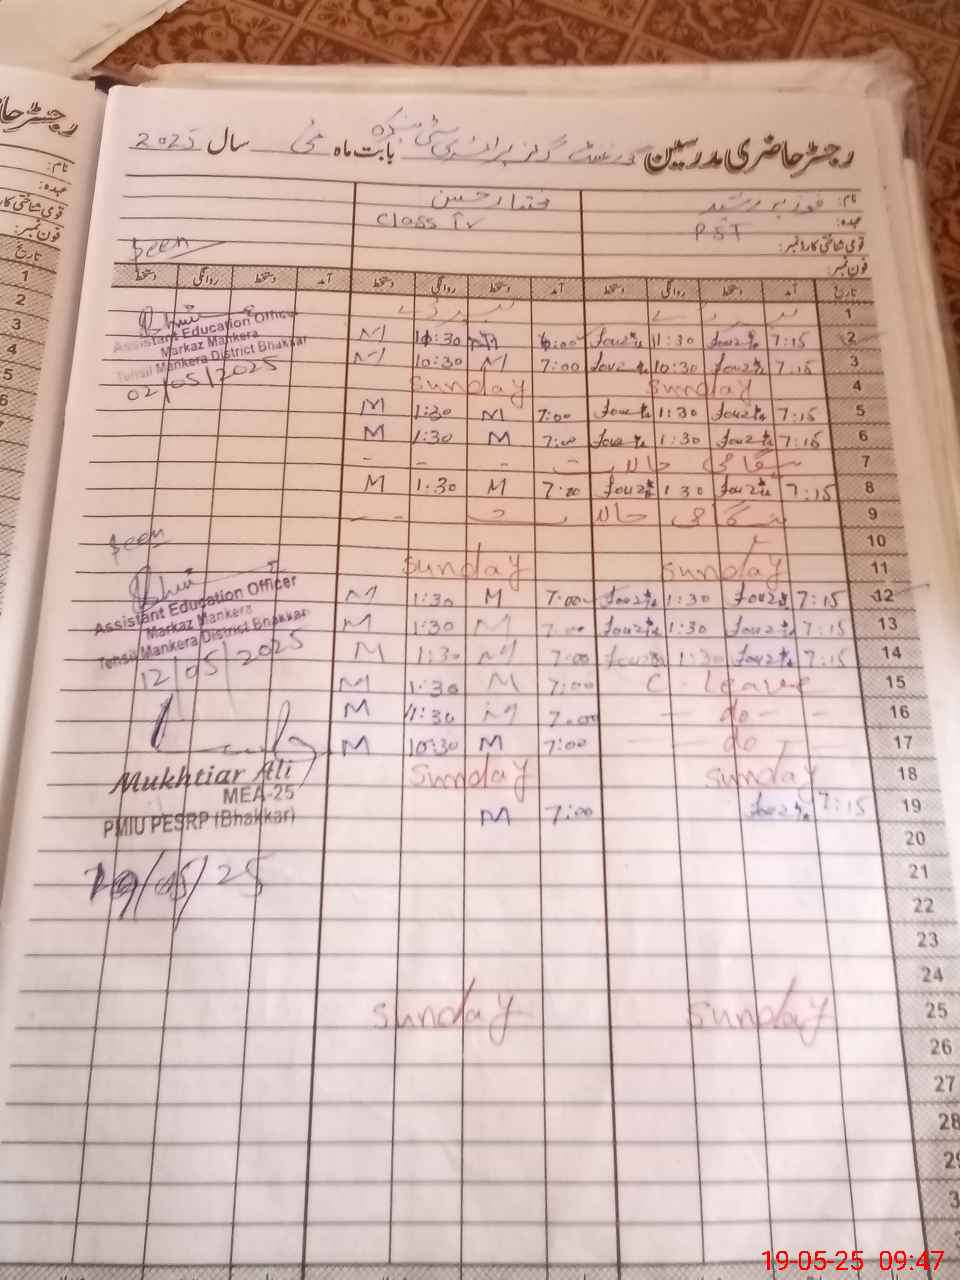 رجسٹر حاضری مدرسین گورنمنٹ گرلز پرائمری سٹی منکیرہ بابت ماہ مئی سال 2025
نام: فوزیہ رشید مختیار حسین
عہدہ: PST Class IV
قومی شناختی کارڈ نمبر:
فون نمبر: Seen
تاریخ آمد دستخط روانگی دستخط آمد دستخط روانگی دستخط آمد دستخط روانگی دستخط
1
2 7:15 1:30 6:00 10:30 M
3 7:15 10:30 7:00 M 10:30 M
4 Sunday Sunday
5 7:15 1:30 7:00 M 1:30 M
6 7:15 1:30 7:00 M 1:30 M
7 ہنگامی حالات - - - -
8 7:15 1:30 7:00 M 1:30 M
9 ہنگامی حالات
10
11 Sunday Sunday
12 7:15 1:30 7:00 M 1:30 M
13 7:15 1:30 7:00 M 1:30 M
14 7:15 1:30 7:00 M 1:30 M
15 C-leave 7:00 M 1:30 M
16 - do - - 7:00 M 1:30 M
17 - do - - 7:00 M 10:30 M
18 Sunday Sunday
19 7:15 7:00 M
20
21
22
23
24
25 Sunday Sunday
26
27
28
29
Assistant Education Officer
Markaz Mankera
Tehsil Mankera District Bhakkar
02/05/2025
Seen
Assistant Education Officer
Markaz Mankera
Tehsil Mankera District Bhakkar
12/05/2025
Mukhtiar Ali
MEA-25
PMIU PESRP (Bhakkar)
19/05/25
رجسٹر حا
نام:
عہدہ:
قومی شناختی کار
فون نمبر:
تاریخ
1
2
3
4
5
6
7
19-05-25 09:47